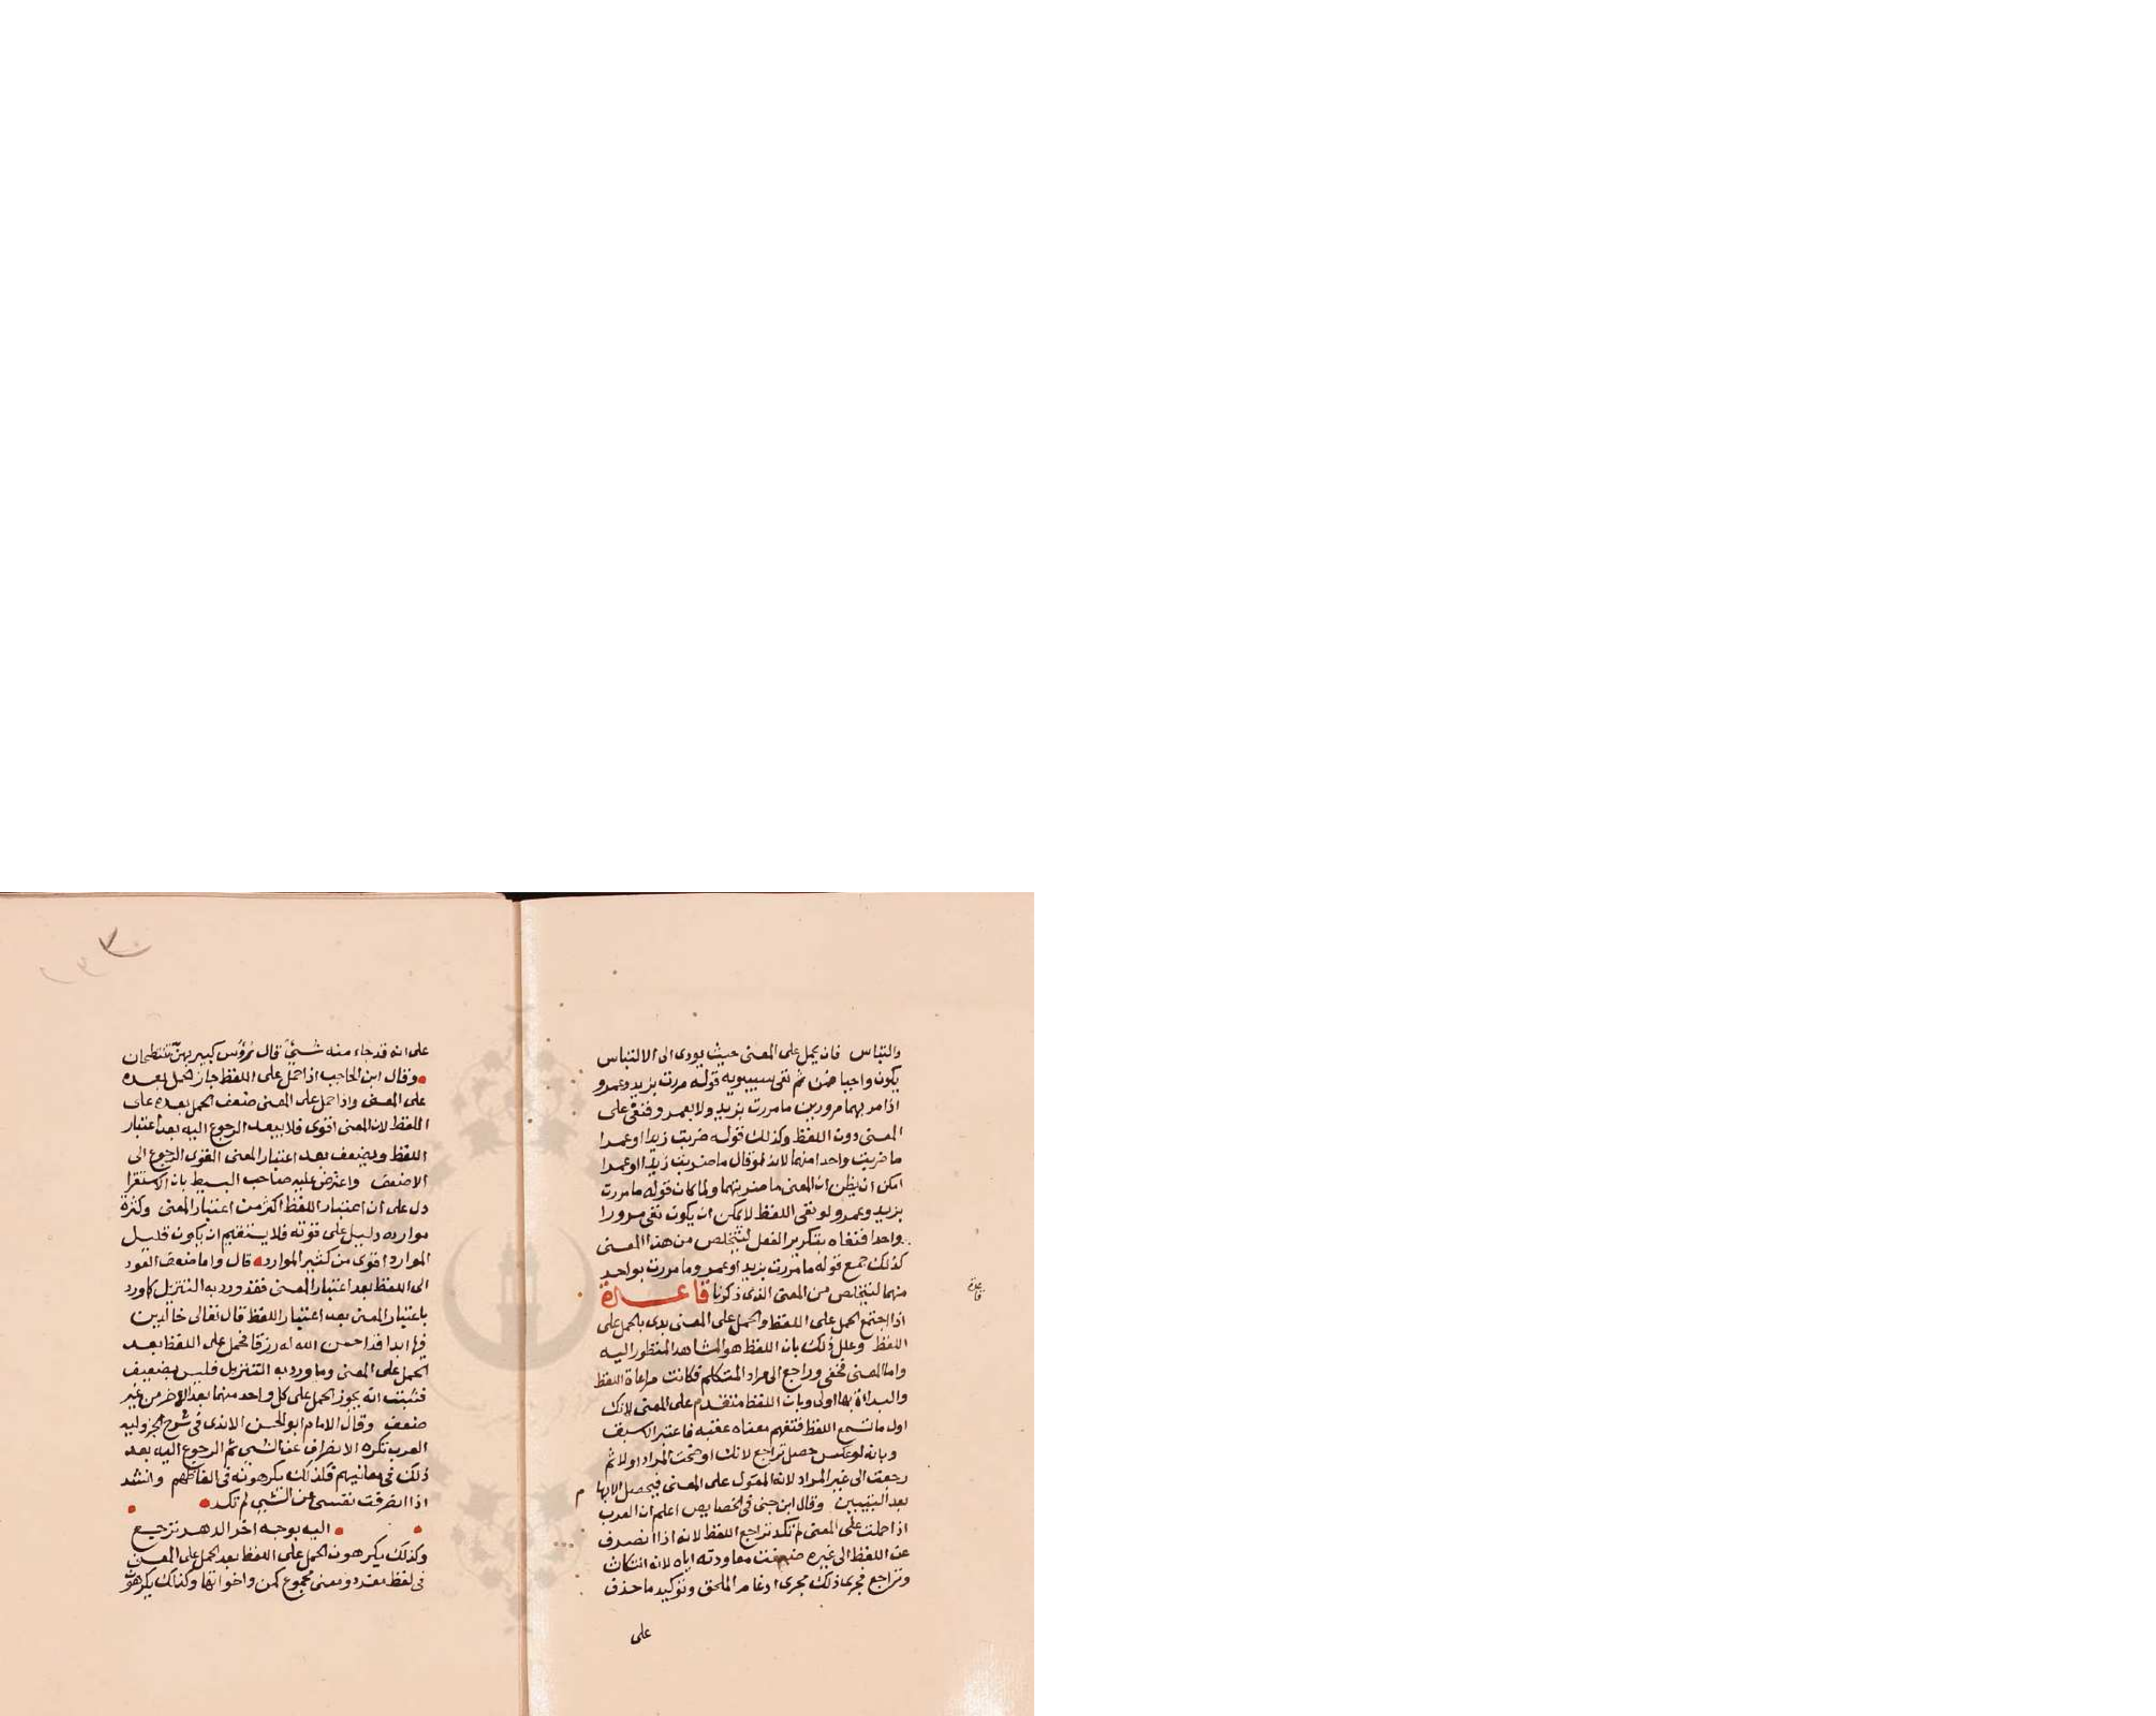 والتباس فان يحمل على المعنى حيث يودى الى الالتباس
يكون واجبا من ثم نفى سيبويه قوله مررت بزيد وعمرو
اذا مر بهما مرورين ما مررت بزيد ولا بعمرو فنفى على
المعنى دون اللفظ وكذلك قوله ضربت زيدا او عمرا
ما ضربت واحدا منهما لانه لو قال ما ضربت زيدا او عمرا
امكن ان يظن ان المعنى ما ضربتهما ولما كان قوله ما مررت
بزيد وعمرو لو نفى اللفظ لا يمكن ان يكون نفى مرورا
واحدا فنفاه بتكرير الفعل ليتخلص من هذا المعنى
كذلك جمع قوله ما مررت بزيد او عمرو وما مررت بواحد
منهما لتتخلص من المعنى الذى ذكرنا قاعدة
اذا اجتمع الحمل على اللفظ والحمل على المعنى بدى بالحمل على
اللفظ وعلل ذلك بان اللفظ هو المشاهد المنظور اليه
واما المعنى فخفى وراجع الى مراد المتكلم فكانت مراعاة اللفظ
والبداة بها اولى وبان اللفظ متقدم على المعنى لانك
اول ما تسمع اللفظ فتفهم معناه عقبه فاعتبر الاسبق
وبانه لو عكس حصل تراجع لانك اوضحت المراد اولا ثم
رجعت الى غير المراد لانه المعول على المعنى فيحصل الابها م
بعد التبيين وقال ابن جنى فى الخصايص اعلم ان العرب
اذا حملت على المعنى لم تكد تراجع اللفظ لانه اذا انصرف
عن اللفظ الى غيره ضعفت معاودته اياه لانه انتكاث
وتراجع فجرى ذلك مجرى ادغام الملحق وتوكيد ما حذف
على
قاعدة
على انه قد جاء منه شئ قال رؤس كبيريهن تنتطحان
وقال ابن الحاجب اذا حمل على اللفظ جاز الحمل بعده
على المعنى واذا حمل على المعنى ضعف الحمل بعده على
اللفظ لان المعنى اقوى فلا يبعد الرجوع اليه بعد اعتبار
اللفظ ويضعف بعد اعتبار المعنى القوى الرجوع الى
الاضعف واعترض عليه صاحب البسيط بان الاستقرا
دل على ان اعتبار اللفظ اكثر من اعتبار المعنى وكثرة
موارده دليل على قوته فلا يستقيم ان يكون قليل
الموارد اقوى من كثير الموارد قال واما ضعف العود
الى اللفظ بعد اعتبار المعنى فقد ورد به التنزيل كما ورد
باعتبار المعنى بعد اعتبار اللفظ قال تعالى خالدين
فيها ابدا قد احسن الله له رزقا فحمل على اللفظ بعد
الحمل على المعنى وما ورد به التنزيل فليس بضعيف
فثبت انه يجوز الحمل على كل واحد منهما بعد الاخر من غير
ضعف وقال الامام ابو الحسن الابدى فى شرح الجزوليه
العرب تكره الانصراف عن الشى ثم الرجوع اليه بعد
ذلك فى معانيهم فلذلك يكرهونه فى الفاظهم وانشد
اذا انصرفت نفسى عن الشى لم تكد
اليه بوجه اخر الدهر ترجع
وكذلك يكرهون الحمل على اللفظ بعد الحمل على المعنى
فى لفظ مفرد ومعنى مجموع كمن واخواتها وكذلك يكرهون